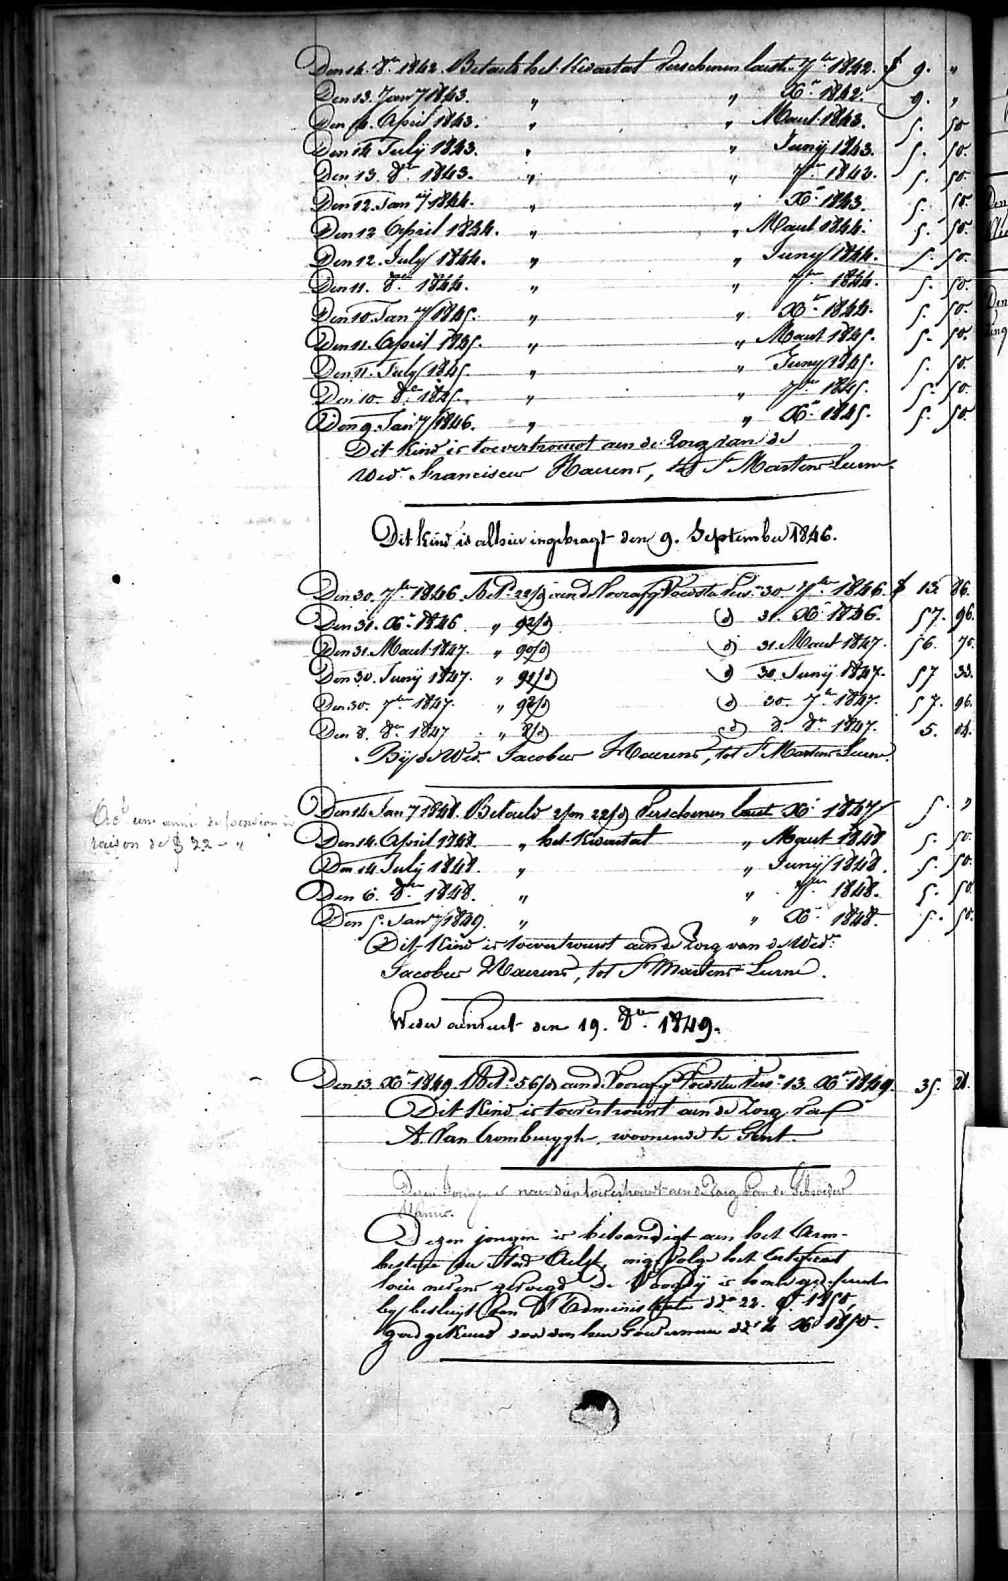 Den 14. 8er 1842. Betaelt het Kwartal Verschenen laest 7ber 1842. f 9. "
Den 13. Jany 1843. " " Xr 1842. 9. "
Den April 1843. " " Maert 1843. 5. 50
Den 14 July 1843. " " Juny 1843. 5. 50.
Den 13. 8er 1843. " " 7ber 1843. 5. 50
Den 12 Jany 1844. " " Xr 1843. 5. 50
Den 12 April 1844. " " Maert 1844. 5. 50.
Den 12. July 1844. " " Juny 1844. 5. 50.
Den 11. 8er 1844. " " 7ber 1844. 5. 50.
Den 10. Jany 1845. " " Xr 1844. 5. 50.
Den 11. April 1845. " " Maert 1845. 5. 50.
Den 11. July 1845. " " Juny 1845. 5. 50.
Den 10. 8er 1845. " " 7ber 1845. 5. 50.
Den 9. Jany 1846. " " Xr 1845. 5. 50.
Dit Kind is toevertrouwt aen de Zorg van de
Wede Franciscus Haerens, tot St Martens Leerne.
Dit kind is alhier ingebragt den 9. September 1846.
Den 30. 7ber 1846. Bet. 22/d aen d' Voorafg Voedster Vers. 30 7ber 1846. f 13. 86.
Den 31. Xr 1846. " 92/d d 31. Xr 1846. 57. 96.
Den 31. Maert 1847. " 90/d d 31. Maert 1847. 56. 70.
Den 30. Juny 1847. " 91/d d 30. Juny 1847. 57 33.
Den 30. 7ber 1847. " 92/d d 30. 7ber 1847. 57. 96.
Den 8. 8er 1847 " 8/d d 8. 8er 1847. 5. 04.
Byd' Wed. Jacobus Haerens, tot St Martens Leerne.
Den 14 Jany 1848. Betaeld 2/m 22/d Verschenen laest Xr 1847 5. "
une année de pension à
raison de f 22 - "
Den 14. April 1848. " het Kwartal " Maert 1848 5. 50.
Den 14 July 1848. " " Juny 1848. 5. 50.
Den 6. 8er 1848. " " 7ber 1848. 5. 50
Den 5. Jany 1849. " " Xr 1848. 5. 50.
Dit Kind is toevertrouwt aen de Zorg van de Wede
Jacobus Haerens, tot St Martens Leerne.
Weder den 19. 8er 1849.
Den 13. Xr 1849. Bet. 56/d aen d' Voorafg Voedster Vers. 13. Xr 1849. 35. 28.
Dit Kind is toevertrouwt aen de Zorg van
A. Van Crombrugghe, woonende te Gent.
Dezen Jongen is toevertrouwt aen de Zorg van de Gebroeders
Dezen jongen is behandigt aen het Arm-
bestier der Stad Aelst, volge het Certificaet
gevoegd de Voogdy is
by besluyt van d' Administratie dd 22. 1850,
goedgekeurd door den heer Gouverneur dd Xr 1850.